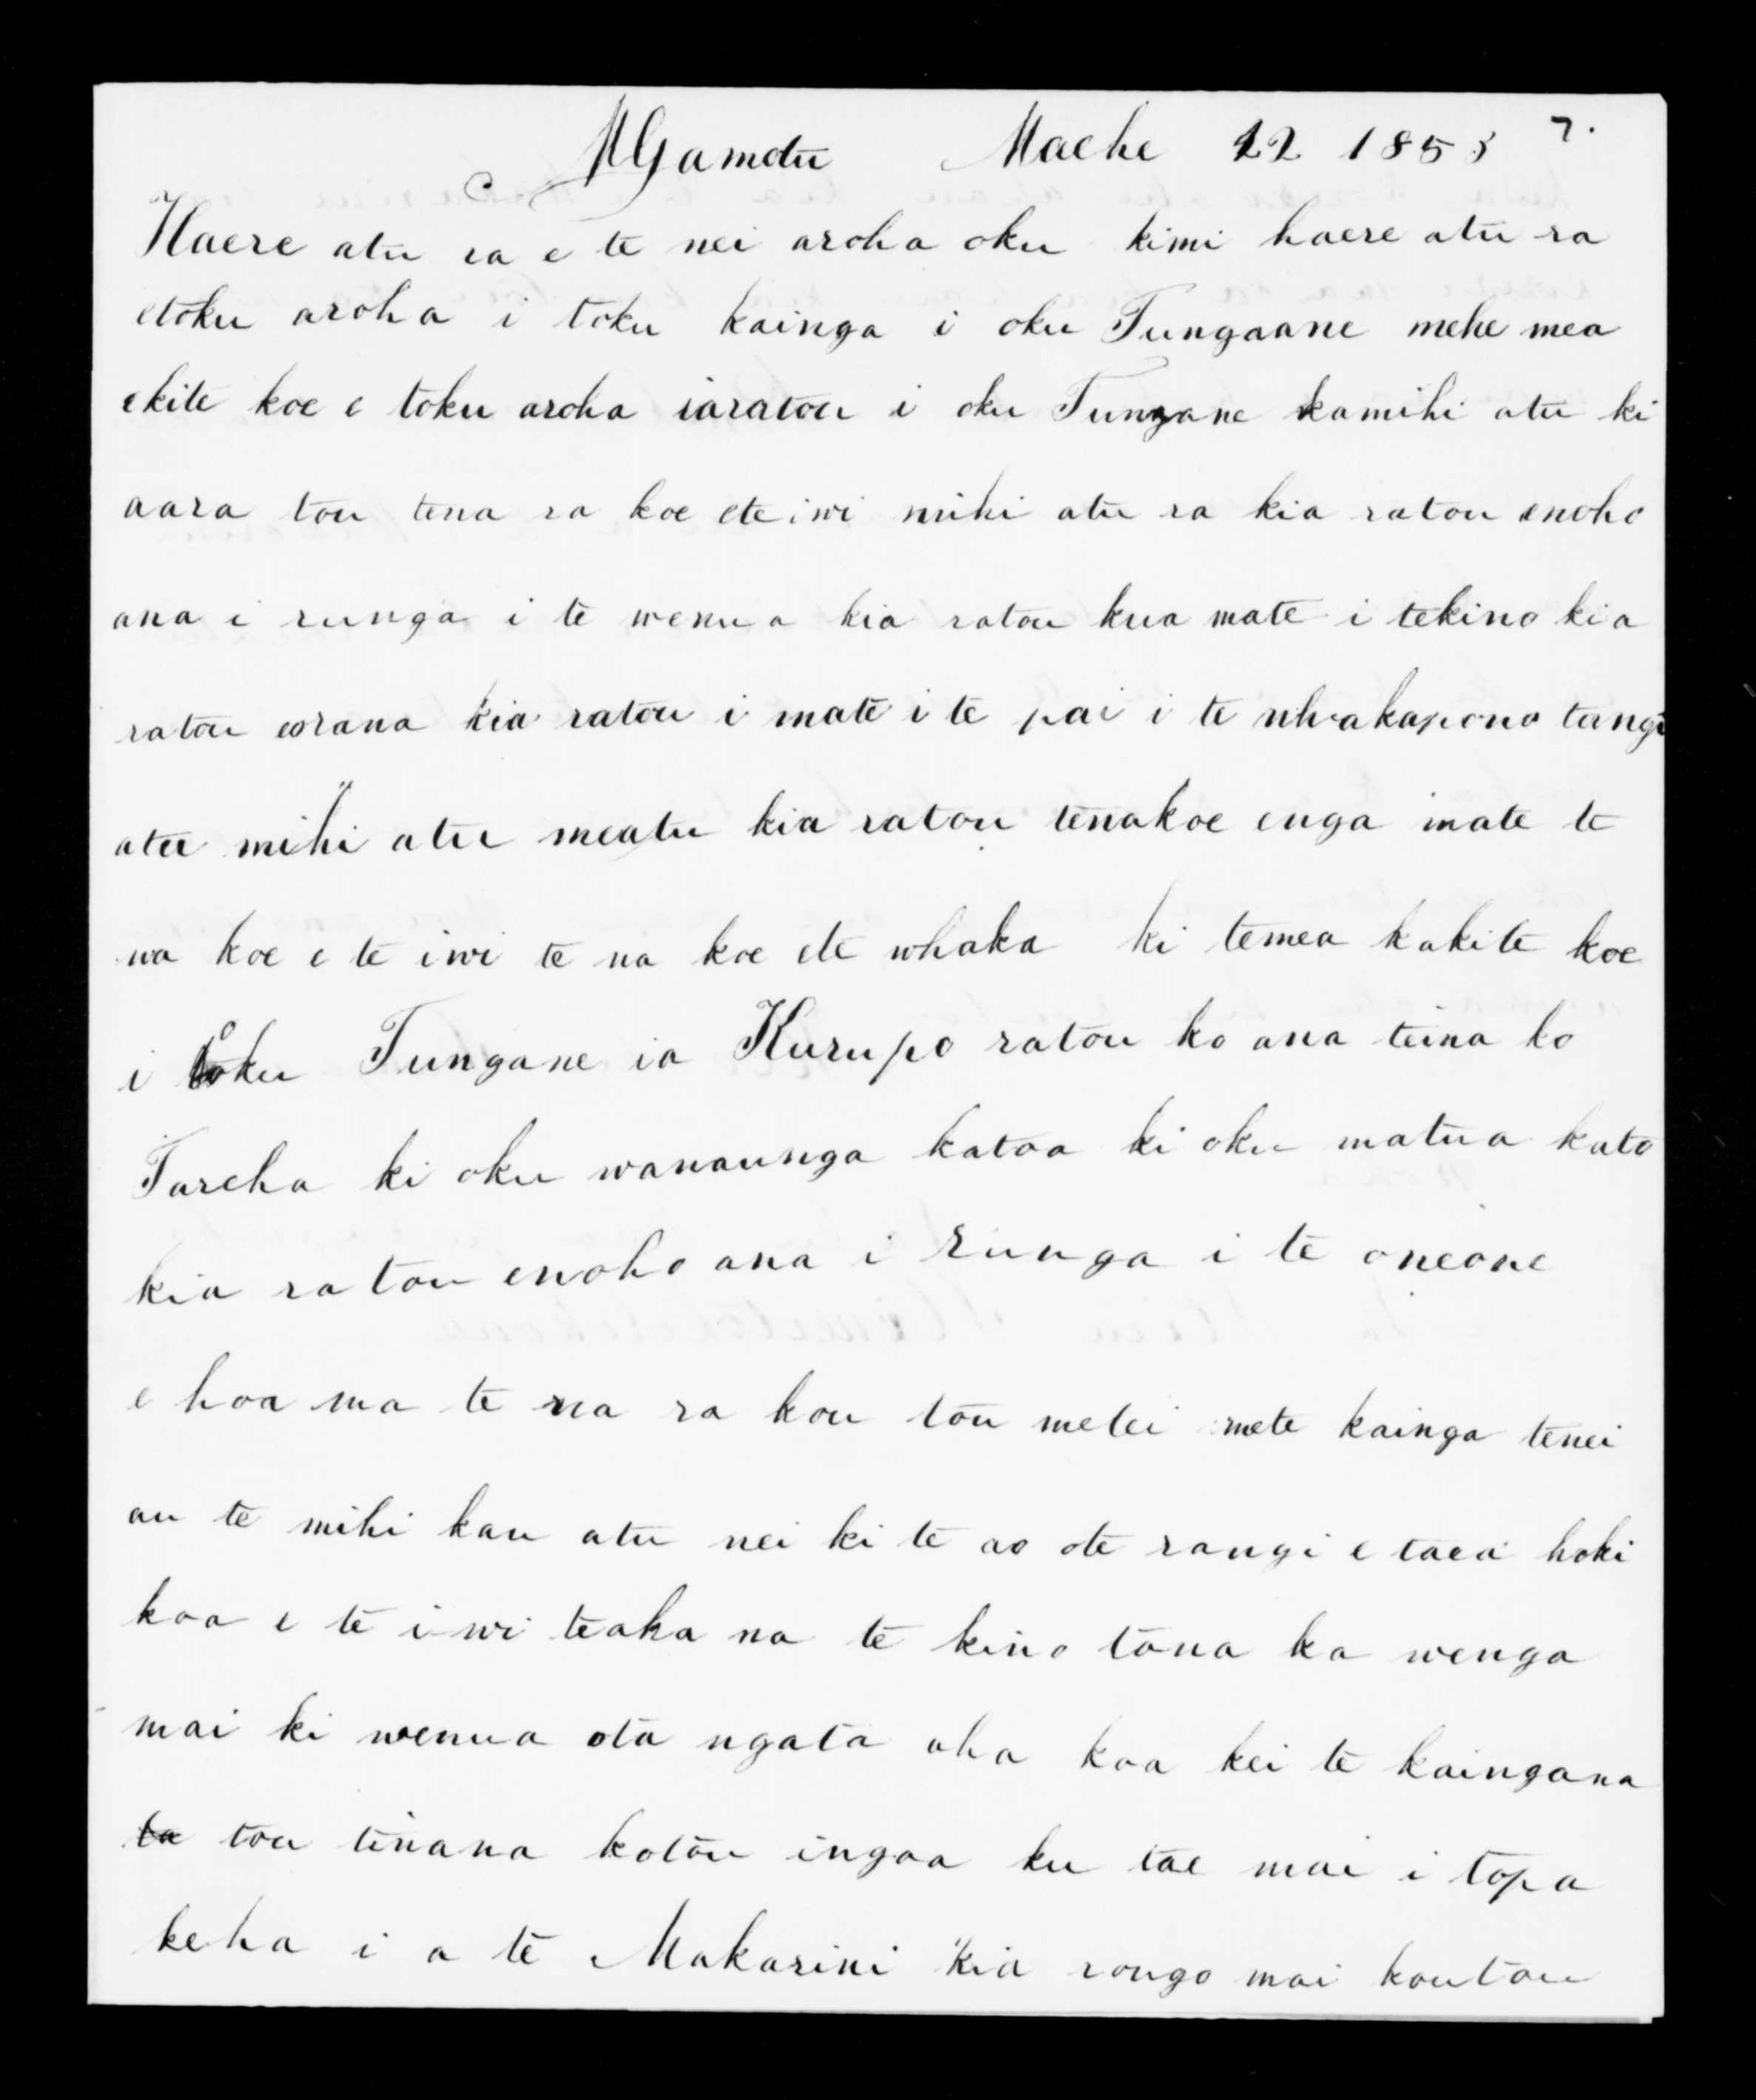 NGamotu Maehe 22 1853 7.
Haere atu ra e te nei aroha oku kimi haere atu ra
etoku aroha i toku kainga i oku Tungaane mehe mea
ekite koe e toku aroha iaratou i oku Tungane kamihi atu ki
aara tou tena ra koe ete iwi mihi atu ra kia ratou enoho
ana i runga i te wenua kia ratou kua mate i tekino kia
ratou eorana kia ratou i mate i te pai i te whakapono tangi
atu mihi atu meatu kia ratou tenakoe enga mate te
na koe e te iwi te na koe ete whaka ki temea kakite koe
i oku Tungane ia Kurupo ratou ko ana teina ko
Tareha ki oku wanaunga katoa ki oku matua kato
kia ra tou enoho ana i runga i te oneone
e hoa ma te na ra kou tou metei mete kainga tenei
au te mihi kau atu nei ki te ao ote rangi e taea hoki
koa e te iwi teaka na te kino tona ka wenga
mai ki wenua ota ngata aha koa kei te kaingana
ta tou tinana kotou ingoa ku tae mai i topa
keha i a te Makarini kia rongo mai koutou